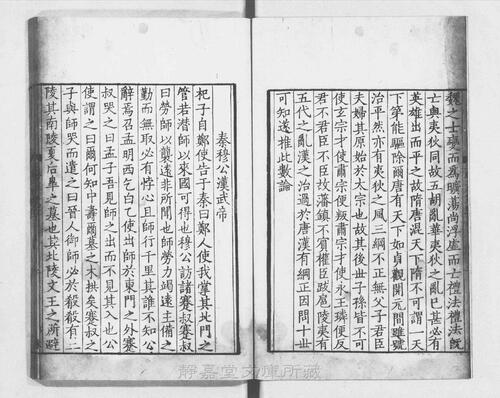 魏之士變而爲曠蕩尚浮虛而亡禮法禮法旣
亡與夷狄同故五胡亂華夷狄之亂已甚必有
英雄出而平之故隋唐混天下隋不可謂一天
下第能驅除爾唐有天下如貞觀開元間雖號
治平然亦有夷狄之風三綱不正無父子君臣
夫婦其原始於太宗也故其後世子孫皆不可
使玄宗才使肅宗便叛肅宗才使永王璘便反
君不君臣不臣故藩鎮不賓權臣跋扈陵夷有
五代之亂漢之治過於唐漢有綱正因問十世
可知遂推此數論
秦穆公漢武帝
杞子自鄭使告于秦曰鄭人使我掌其北門之
管若潛師以來國可得也穆公訪諸蹇叔蹇叔
曰勞師以襲遠非所聞也師勞力竭遠主備之
勤而無取必有悖心且師行千里其誰不知公
辭焉召孟明西乞白乙使出師於東門之外蹇
叔哭之曰孟子吾見師之出而不見其入也公
使謂之曰爾何知中壽爾墓之木拱矣蹇叔之
子與師哭而遣之曰晉人御師必於殽殽有二
陵其南陵夏后皐之墓也其北陵文王之所避
静嘉堂文庫所蔵